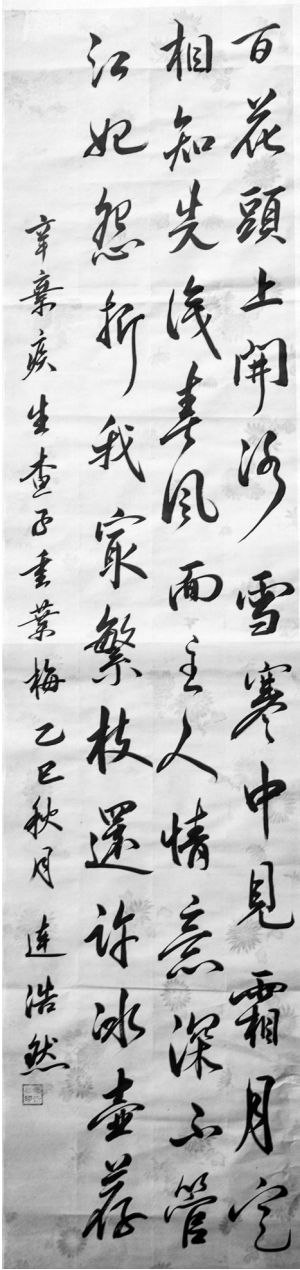 百花頭上開冰雪寒中見霜月定
相知先識春風面主人情意深不管
江妃怨折我最繁枝還許冰壺荐
辛棄疾生查子重葉梅乙巳秋月連浩然